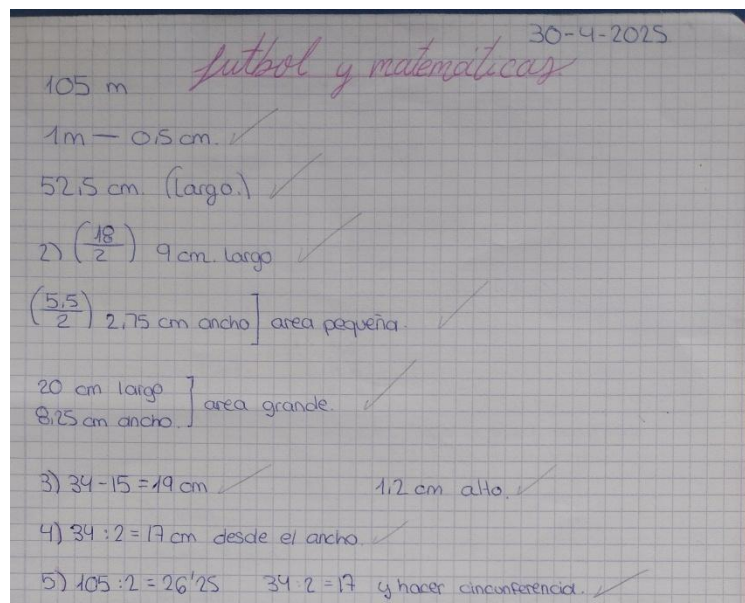 30-4-2025
futbol y matemáticas
105 m
1m — 0,5 cm.
52,5 cm. (Largo.)
2) (18/2) 9 cm. largo
(5,5/2) 2,75 cm ancho] area pequeña.
20 cm largo
8,25 cm ancho.] area grande.
3) 34-15 = 19 cm 1,2 cm alto.
4) 34 : 2 = 17 cm desde el ancho.
5) 105 : 2 = 26'25 34 : 2 = 17 y hacer cincunferencia.